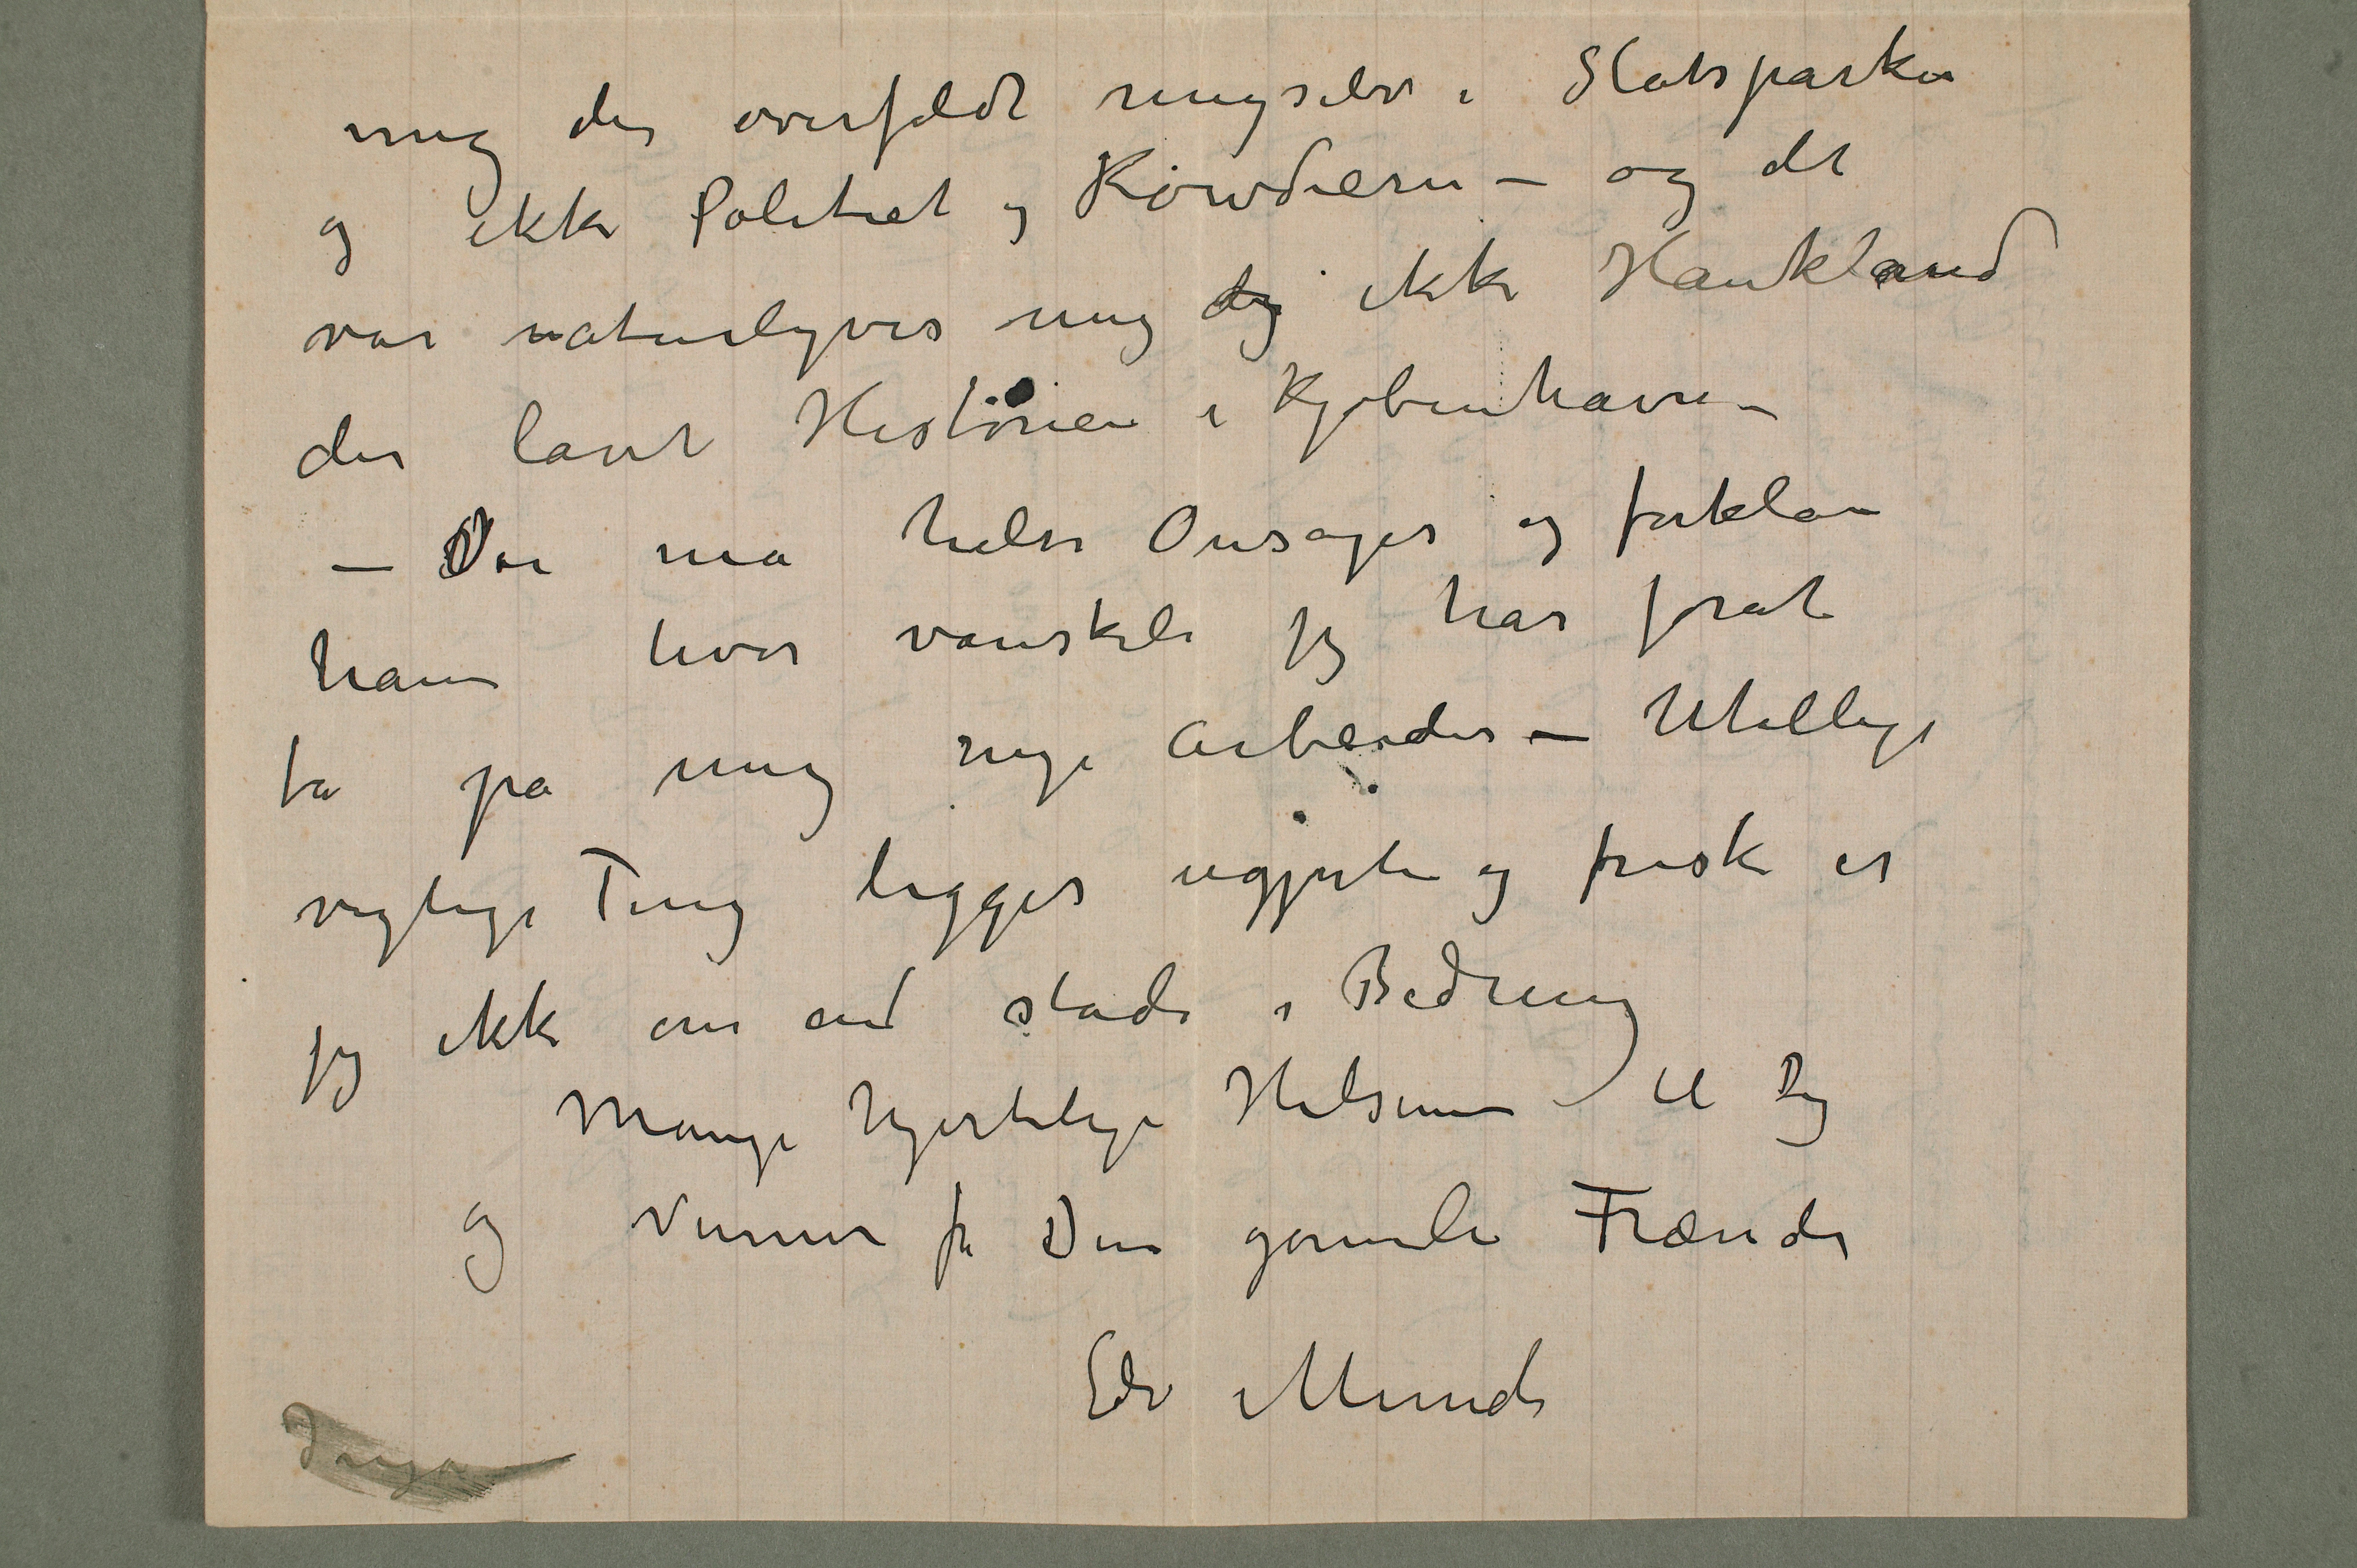 mig der overfaldt migselv i Slotsparken
og ikke Politiet og – og det
var naturligvis mig og ikke Haukland
der lavet Historien i Kjøbenhavn –
– Du må hilse Onsager og forklare
ham hvor vanskeli jeg har forat
ta på mig nye arbeider – Utallige
vigtige Ting ligger ugjorte og frisk er
jeg ikke om end stadi i Bedring
Mange hjertelige Hilsener til Dig
og Venner fra Din gamle Frænde
Edv Munch
Inga